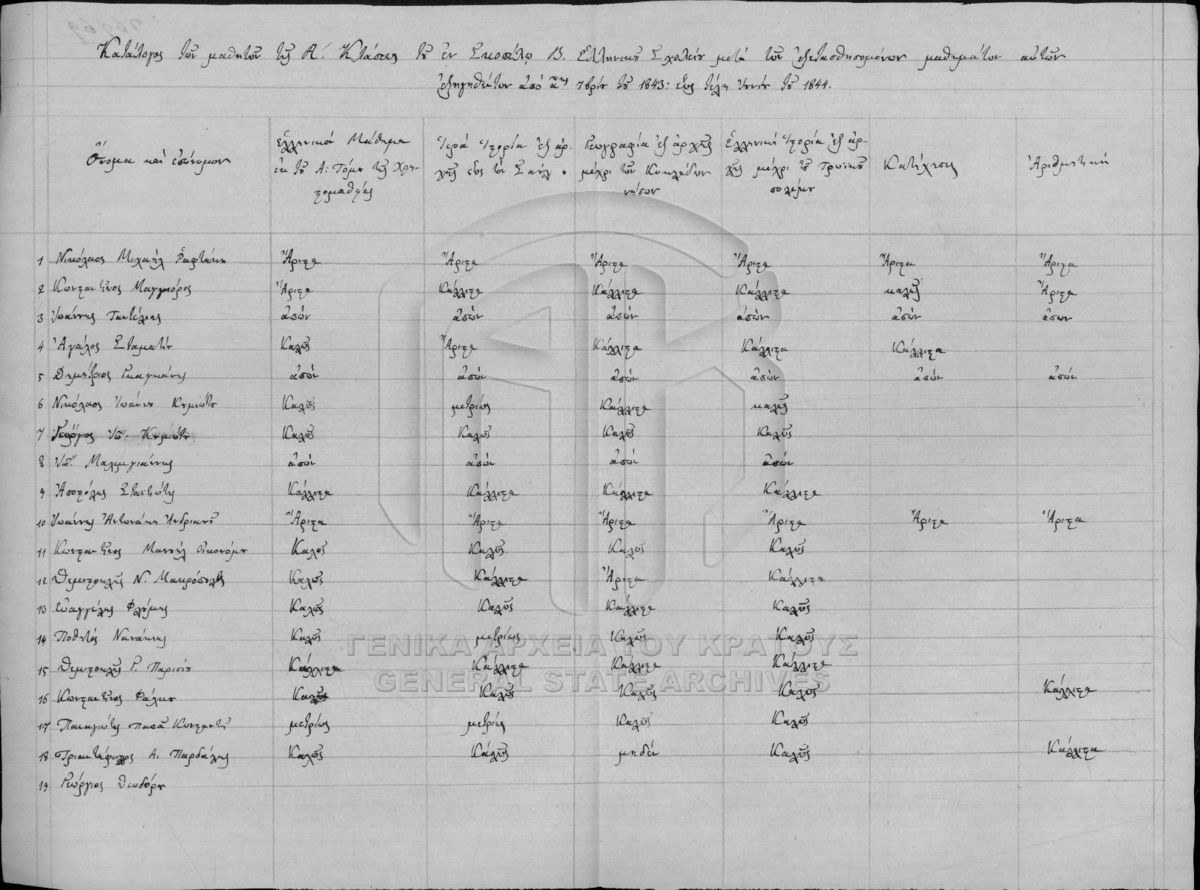 Κατάλογος τῶν μαθητῶν τῆς Α΄. Κλάσεως τοῦ ἐν Σκοπέλῳ Β. Ἑλληνικοῦ Σχολείου μετὰ τῶν ἐξετασθησομένων μαθημάτων αὐτῶν
ἐξηγηθέντων ἀπὸ 7βρίου τοῦ 1843: ἕως τέλη Ἰουνίου τοῦ 1844.
Ὄνομα καὶ ἐπώνυμον
Ἑλληνικὸν Μάθημα ἐκ τοῦ Α: Τόμου τῆς Χρηστομαθείας
Ἱερὰ Ἱστορία ἐξ ἀρχῆς ἕως τὸν Σαούλ
Γεωγραφία ἐξ ἀρχῆς μέχρι τῶν Κυκλάδων νήσων
Ἑλληνικὴ Ἱστορία ἐξ ἀρχῆς μέχρι τοῦ Τρωϊκοῦ πολέμου
Κατήχησις
Ἀριθμητική
1 Νικόλαος Μιχαὴλ Ἄριστα Ἄριστα Ἄριστα Ἄριστα Ἄριστα Ἄριστα
2 Κωνσταντῖνος Ἄριστα Κάλλιστα Κάλλιστα Κάλλιστα καλῶς Ἄριστα
3 Ἰωάννης ἀπών ἀπών ἀπών ἀπών ἀπών ἀπών
4 Σταματίου Καλῶς Ἄριστα Κάλλιστα Κάλλιστα Κάλλιστα
5 Δημήτριος ἀπών ἀπών ἀπών ἀπών ἀπών ἀπών
6 Νικόλαος Ἰωάννου Καλῶς μετρίως Κάλλιστα καλῶς
7 Γεώργιος Ἰω. Καλῶς Καλῶς Καλῶς Καλῶς
8 Ἰω. ἀπών ἀπών ἀπών ἀπών
9 Ἀποστόλης Κάλλιστα Κάλλιστα Κάλλιστα Κάλλιστα
10 Ἰωάννης Ἀντωνάκη Ἀνδριανοῦ Ἄριστα Ἄριστα Ἄριστα Ἄριστα Ἄριστα Ἄριστα
11 Κωνσταντῖνος Μανουὴλ Οἰκονόμου Καλῶς Καλῶς Καλῶς Καλῶς
12 Θεμιστοκλῆς Ν. Καλῶς Κάλλιστα Ἄριστα Κάλλιστα
13 Εὐαγγέλης Καλῶς Καλῶς Κάλλιστα Καλῶς
14 Ποθητὸς Νανάκης Καλῶς μετρίως Καλῶς Καλῶς
15 Θεμιστοκλῆς Γ. Παρίση Κάλλιστα Κάλλιστα Κάλλιστα Κάλλιστα
16 Κωνσταντῖνος Καλῶς Καλῶς Καλῶς Καλῶς Κάλλιστα
17 Παναγιώτης παπᾶ μετρίως μετρίως Καλῶς Καλῶς
18 Τριαντάφυλλος Α. Παρδάλης Καλῶς Καλῶς μηδέν Καλῶς Κάλλιστα
19 Γεώργιος Θεοδώρου
ΓΕΝΙΚΑ ΑΡΧΕΙΑ ΤΟΥ ΚΡΑΤΟΥΣ
GENERAL STATE ARCHIVES